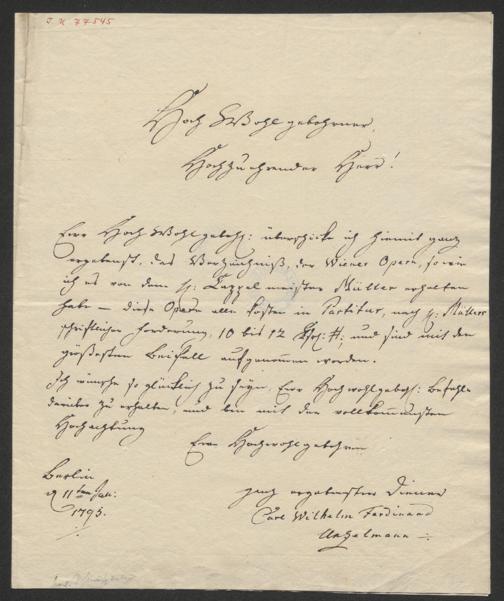 I. N. 77545
Hoch Wohlgebohrner,
Hochzuehrender Herr!
Euer Hoch Wohlgebohr: überschicke ich hiemit ganz
ergebenst, das Verzeichniß der Wiener Opern, so wie
ich es von dem H: Kappelmeister Müller erhalten
habe — diese Opern alle kosten in Partitur, nach H: Müllers
schriftlicher Forderung, 10 bis 12 #: und sind mit den
größesten Beifall aufgenommen worden.
Ich wünsche so glücklich zu seyn, Euer Hochwohlgebohr: Befehle
darüber zu erhalten, und bin mit der vollkommensten
Hochachtung
Euer Hochwohlgebohren
Berlin
d 11ten Jan:
1795.
ganz ergebenster Diener
Carl Wilhelm Ferdinand
Unzelmann